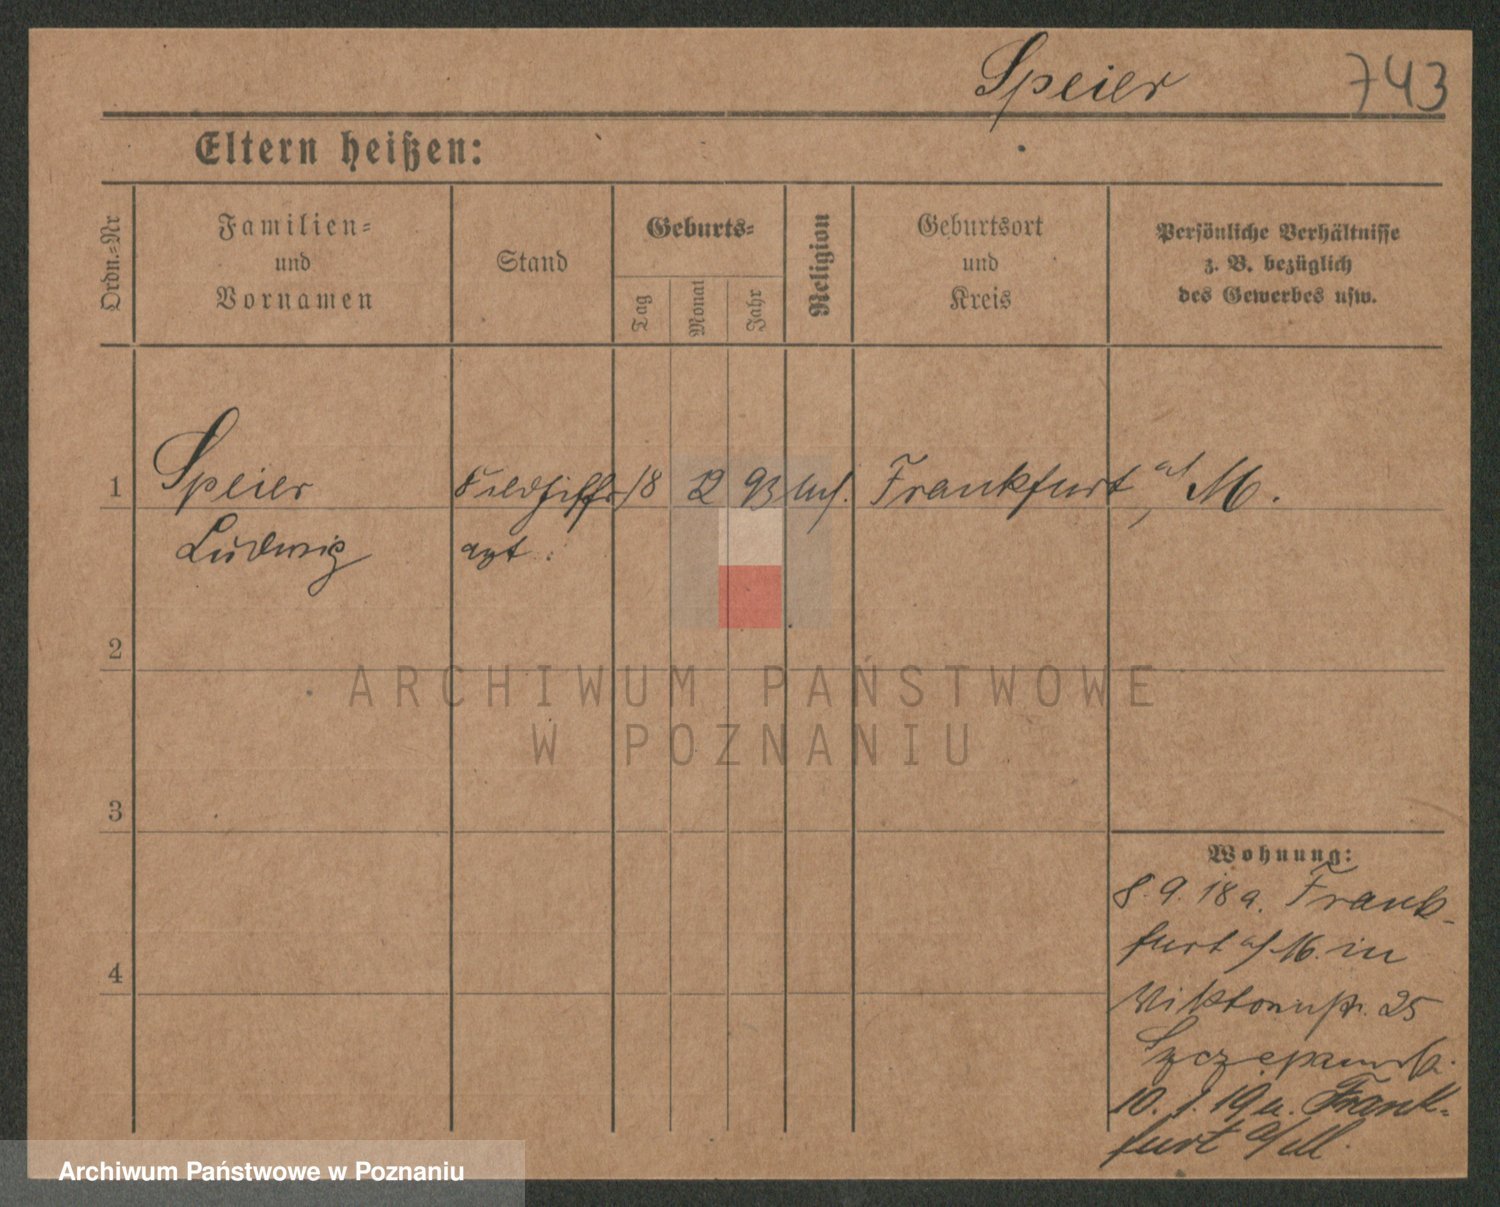 Speier 743
Eltern heißen:
Ordn.=Nr
Familien=
und
Vornamen
Stand
Geburts=
Tag
Monat
Jahr
Religion
Geburtsort
und
Kreis
Persönliche Verhältnisse
z. B. bezüglich
des Gewerbes usw.
1 Speier 18 12 93 Frankfurt a/ M.
Ludwig
2
3
4
Wohnung:
8. 9. 18 a. Frank-
furt a/ M. in
Viktoriastr. 25
10. 1. 19 n. Frank-
furt a/M.
ARCHIWUM PAŃSTWOWE
W POZNANIU
Archiwum Państwowe w Poznaniu